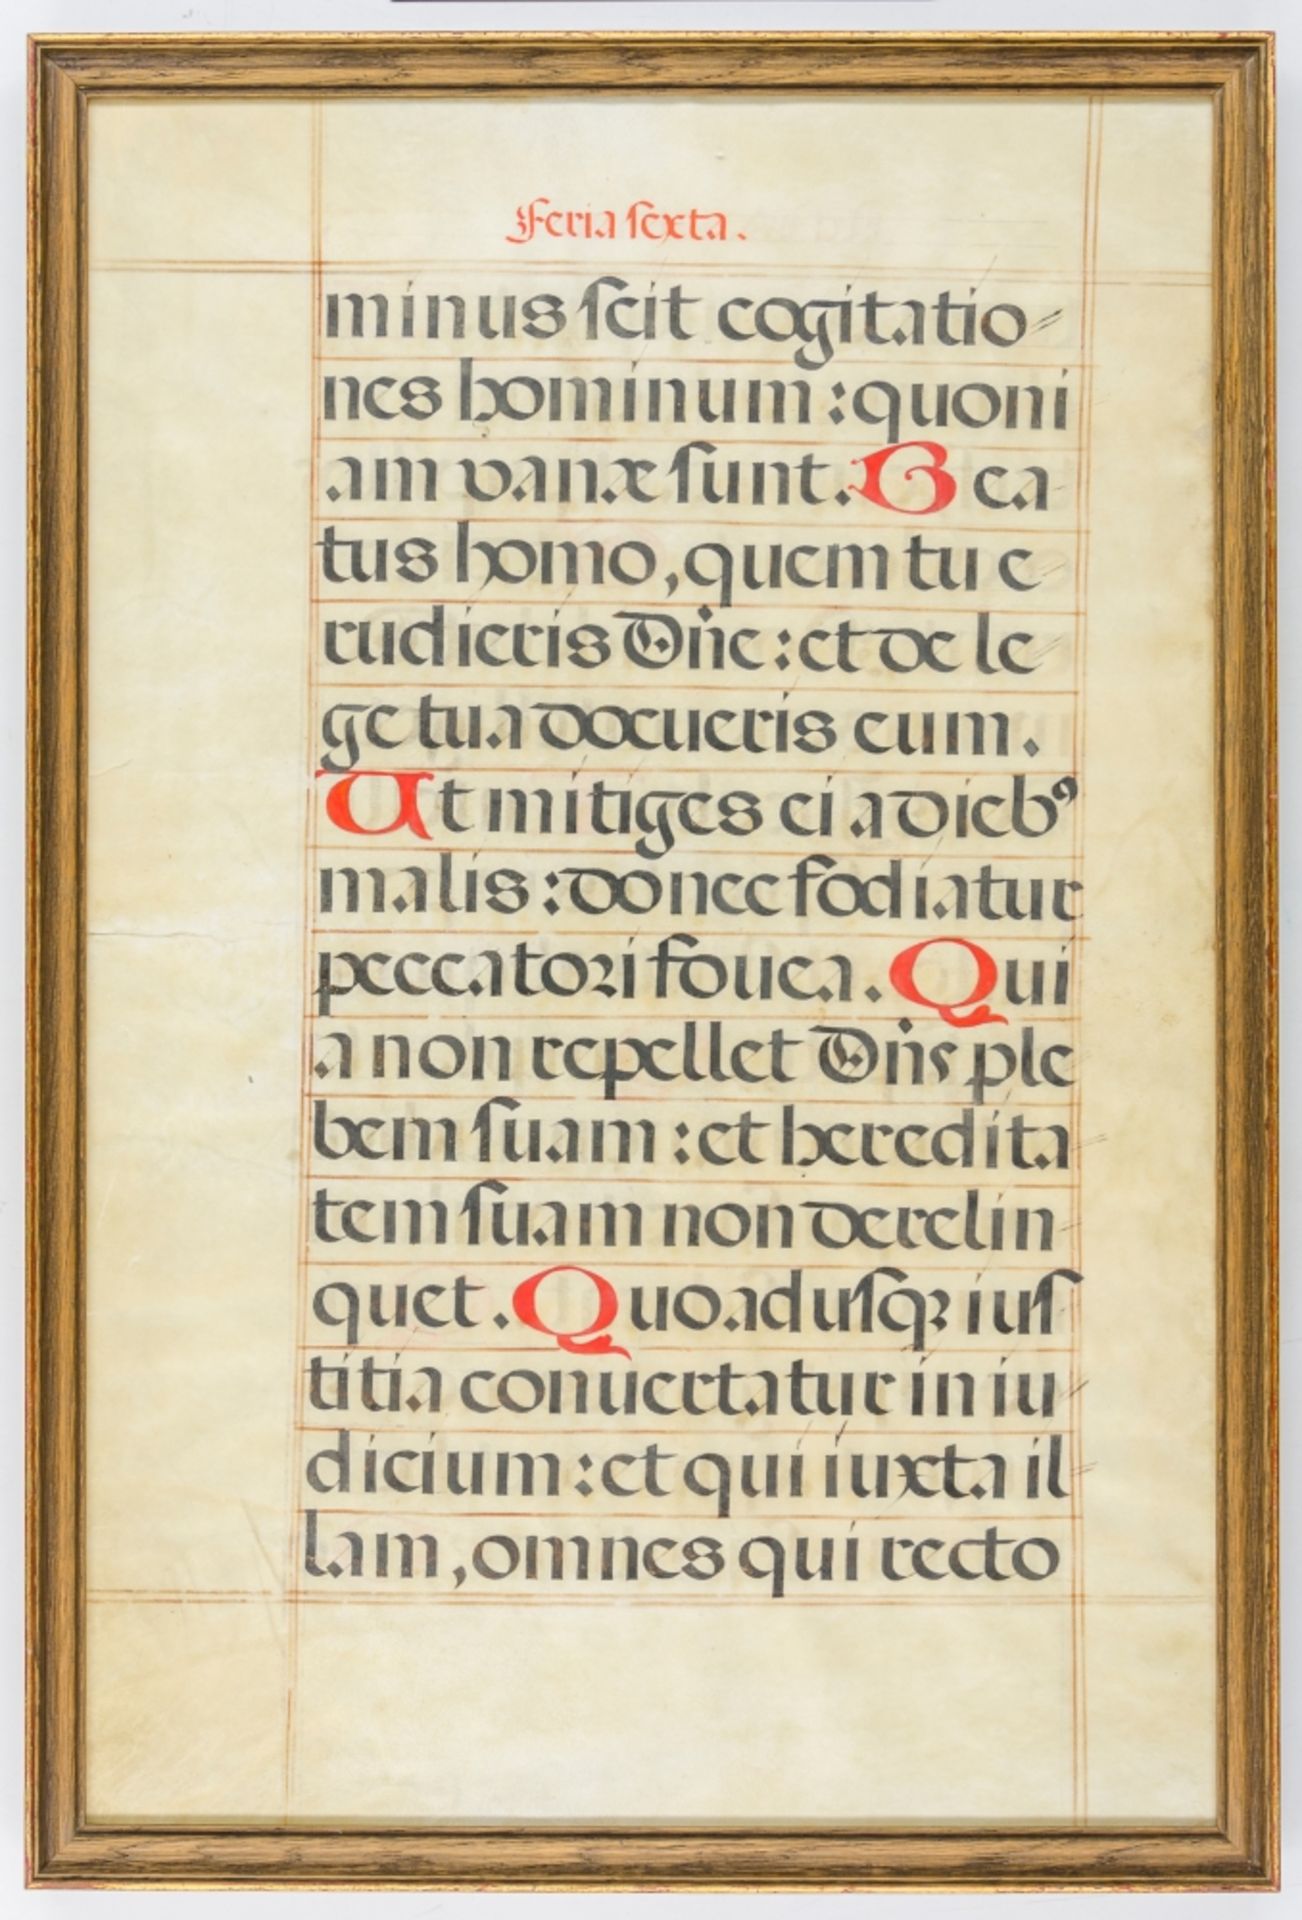 Feria sexta.
minus scit cogitatio-
nes hominum: quoni
am vanæ sunt. Bea
tus homo, quem tu e
rudieris Dñe: et de le
ge tua docueris eum.
Ut mitiges ei a dieb⁹
malis: donec fodiatur
peccatori fouea. Qui
a non repellet Dñs ple
bem suam: et heredita
tem suam non derelin
quet. Quoadusqꝫ ius
titia conuertatur in iu
dicium: et qui iuxta il
lam, omnes qui recto